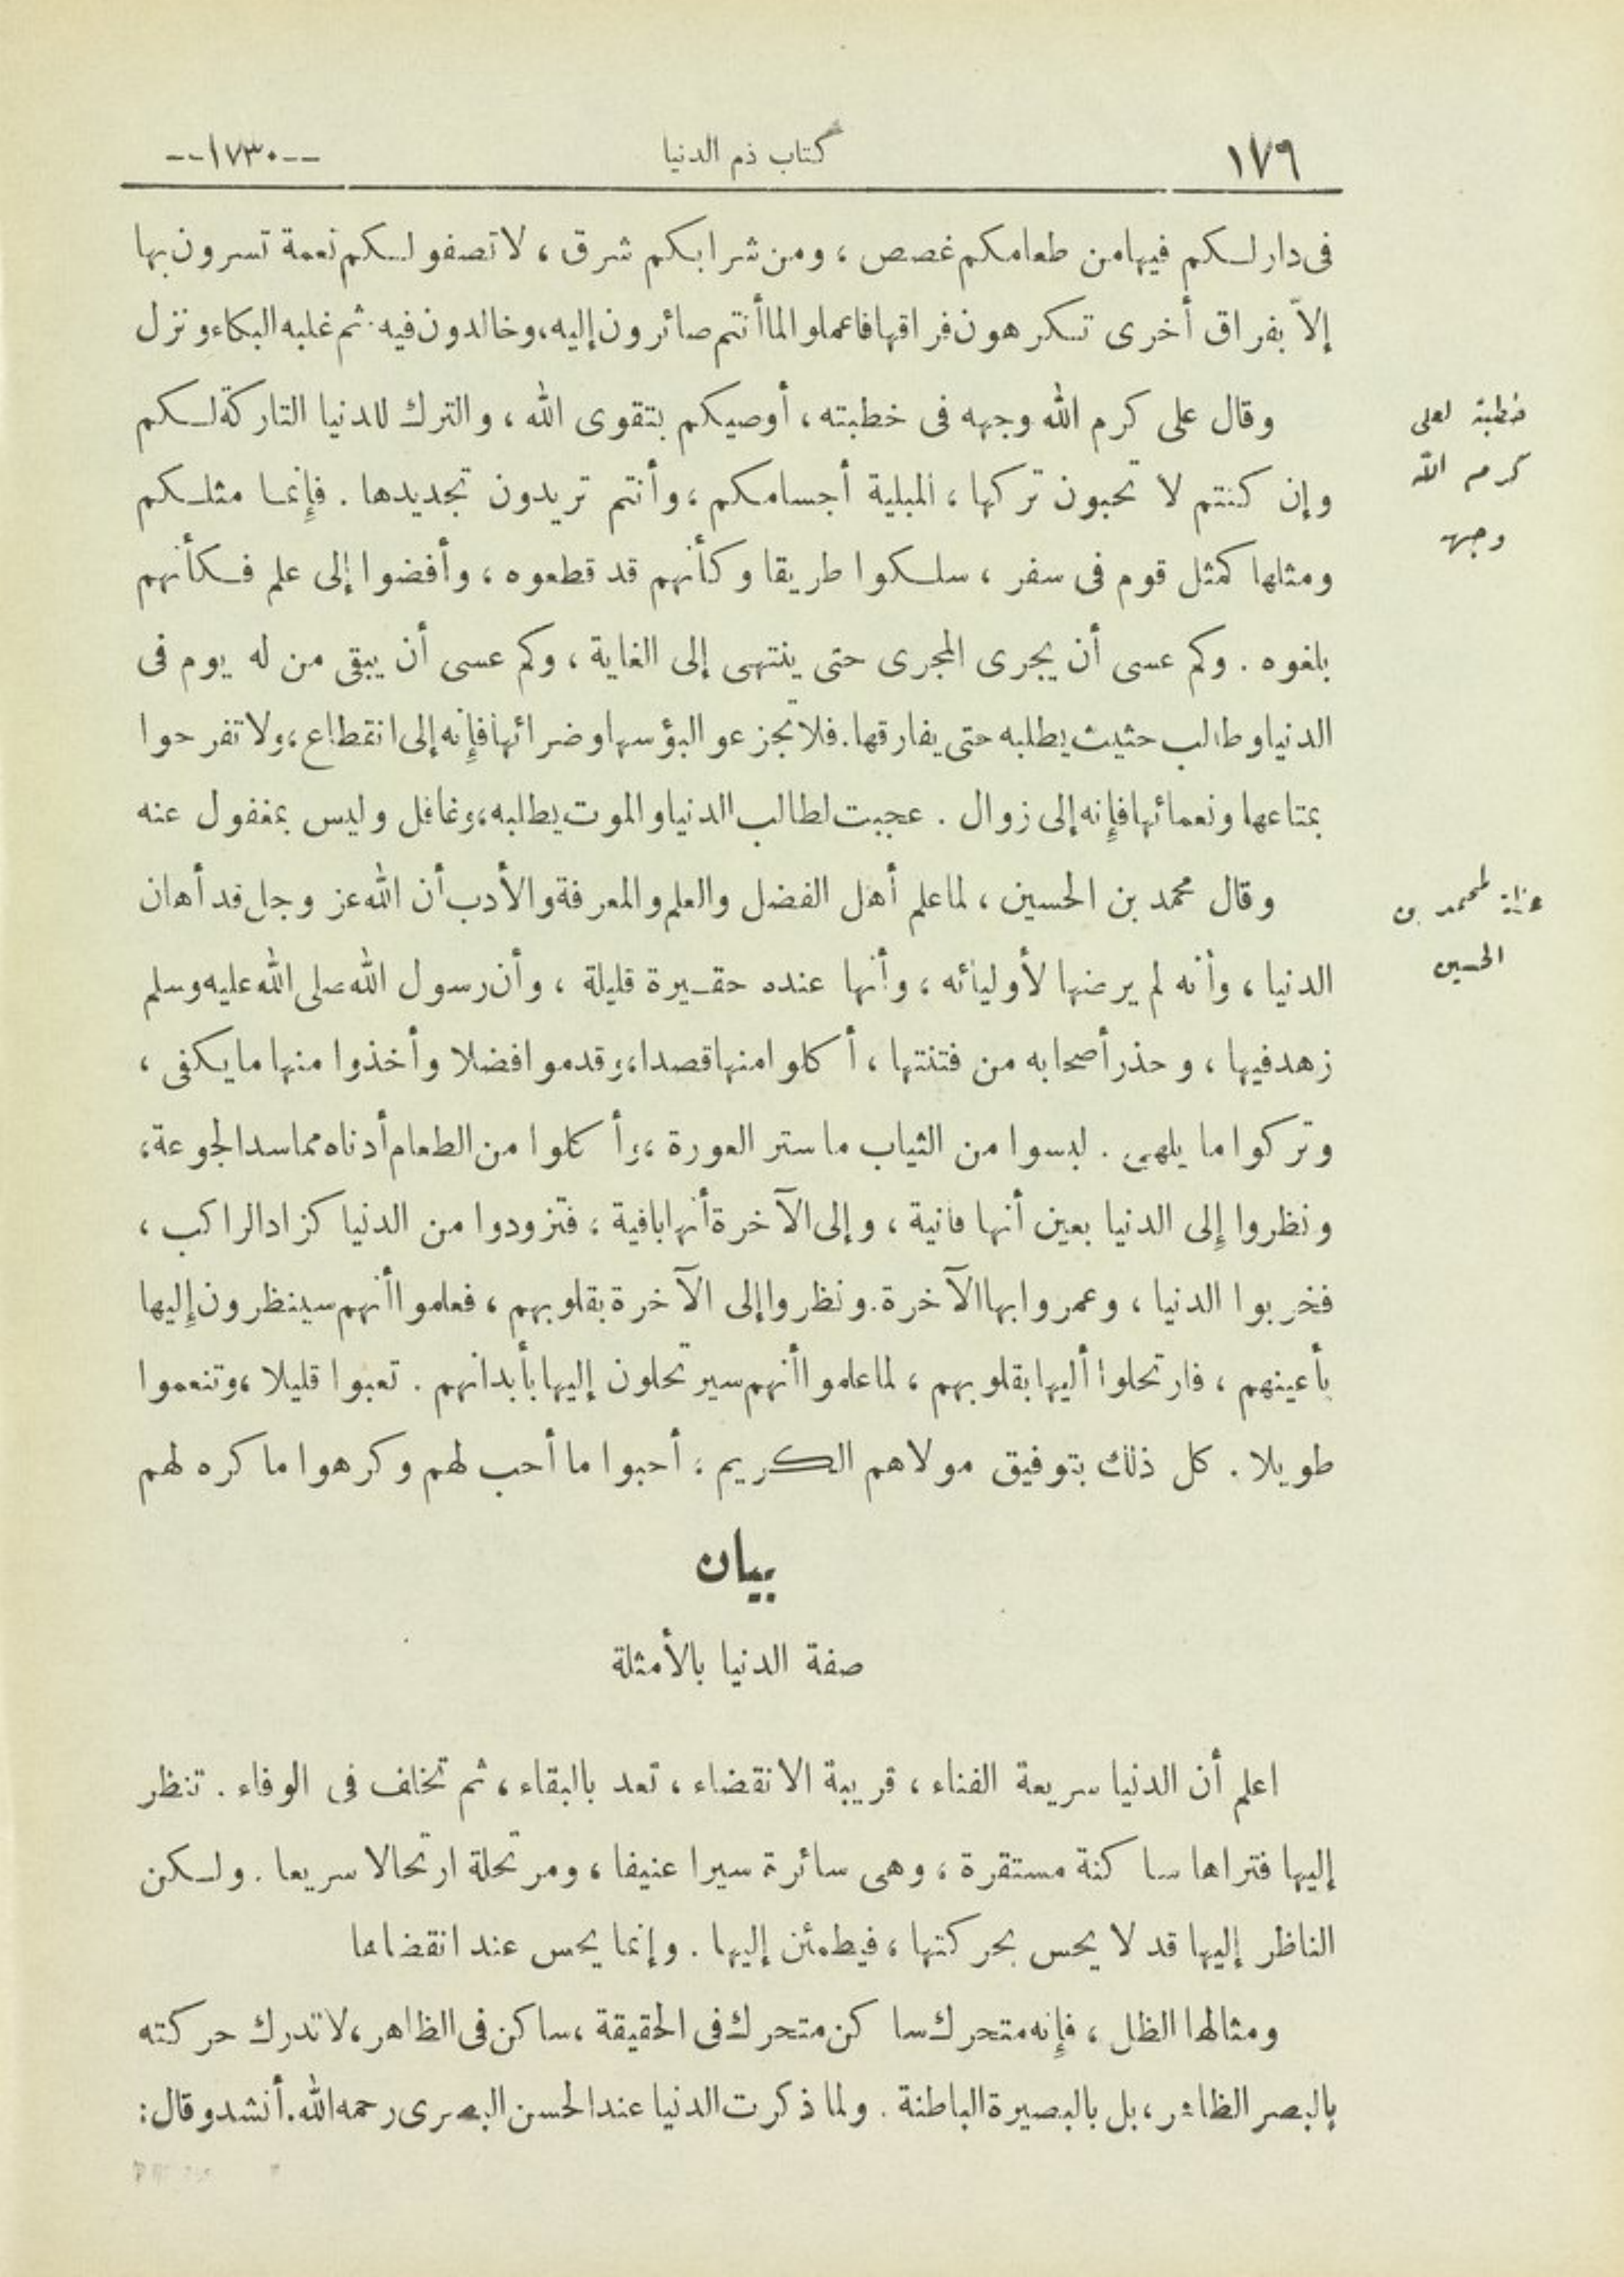 ١٧٩ كتاب ذم الدنيا --١٧٣٠--
فى دار لكم فيها من طعامكم غصص ، ومن شرابكم شرق ، لا تصفو لكم نعمة تسرون بها
إلاّ بفراق أخرى تكرهون فراقها فاعملوا لما أنتم صائرون إليه، وخالدون فيه. ثم غلبه البكاء ونزل
وقال على كرم الله وجهه فى خطبته ، أوصيكم بتقوى الله ، والترك للدنيا التاركة لكم
وإن كنتم لا تحبون تركها ، المبلية أجسامكم ، وأنتم تريدون تجديدها . فإنما مثلكم
ومثلها كمثل قوم فى سفر ، سلكوا طريقا وكأنهم قد قطعوه ، وأفضوا إلى علم فكأنهم
بلغوه . وكم عسى أن يجرى المجرى حتى ينتهى إلى الغاية ، وكم عسى أن يبقى من له يوم فى
الدنيا وطالب حثيث يطلبه حتى يفارقها. فلا تجزعوا لبؤسها وضرائها فإنه إلى انقطاع ، ولا تفرحوا
بمتاعها ونعمائها فإنه إلى زوال . عجبت لطالب الدنيا والموت يطلبه ، وغافل وليس بمغفول عنه
وقال محمد بن الحسين ، لما علم أهل الفضل والعلم والمعرفة والأدب أن الله عز وجل قد أهان
الدنيا ، وأنه لم يرضها لأوليائه ، وأنها عنده حقيرة قليلة ، وأن رسول الله صلى الله عليه وسلم
زهد فيها ، وحذر أصحابه من فتنتها ، أكلوا منها قصدا ، وقدموا فضلا وأخذوا منها ما يكفى ،
وتركوا ما يلهى . لبسوا من الثياب ما ستر العورة ، وأكلوا من الطعام أدناه مما سد الجوعة ،
ونظروا إلى الدنيا بعين أنها فانية ، وإلى الآخرة أنها باقية ، فتزودوا من الدنيا كزاد الراكب ،
فخربوا الدنيا ، وعمروا بها الآخرة. ونظروا إلى الآخرة بقلوبهم ، فعلموا أنهم سينظرون إليها
بأعينهم ، فارتحلوا أليها بقلوبهم ، لما علموا أنهم سيرتحلون إليها بأبدانهم . تعبوا قليلا ، وتنعموا
طويلا . كل ذلك بتوفيق مولاهم الكريم ؛ أحبوا ما أحب لهم وكرهوا ما كره لهم
خطبة لعلى
كرم الله
وجهه
لمحمد بن
الحسين
بيان
صفة الدنيا بالأمثلة
اعلم أن الدنيا سريعة الفناء ، قريبة الانقضاء ، تعد بالبقاء ، ثم تخلف فى الوفاء . تنظر
إليها فتراها ساكنة مستقرة ، وهى سائرة سيرا عنيفا ، ومرتحلة ارتحالا سريعا . ولكن
الناظر إليها قد لا يحس بحركتها ، فيطمئن إليها . وإنما يحس عند انقضائها
ومثالها الظل ، فإنه متحرك ساكن متحرك فى الحقيقة ، ساكن فى الظاهر ، لا تدرك حركته
بالبصر الظاهر ، بل بالبصيرة الباطنة . ولما ذكرت الدنيا عند الحسن البصرى رحمه الله. أنشد وقال :